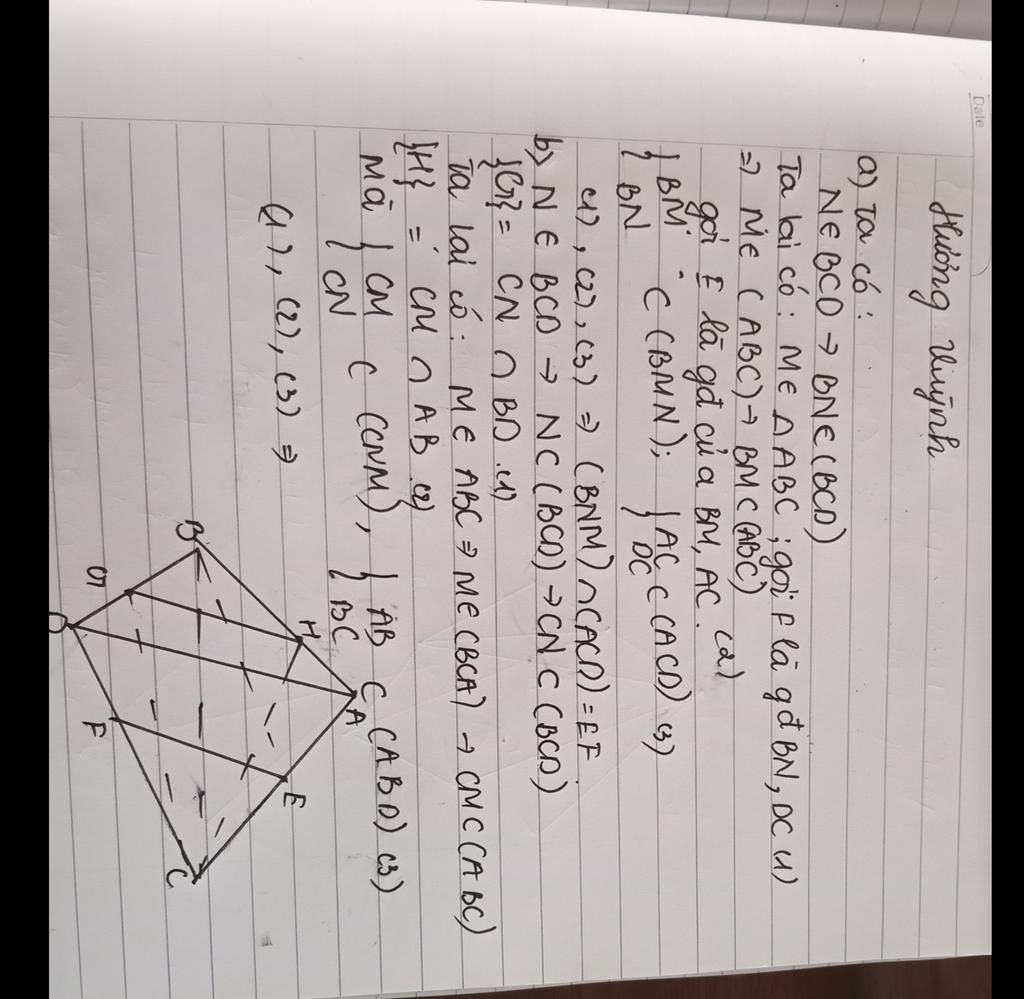 Date
Hương Quỳnh
a) Ta có:
N ∈ BCD → BN ∈ (BCD)
Ta lại có: M ∈ △ ABC ; gọi F là gđ BN, DC (1)
=> M ∈ (ABC) → BM ⊂ (ABC)
gọi E là gđ của BM, AC (2)
{ BM ⊂ (BMN); { AC ⊂ (ACD) (3)
BN DC
(1), (2), (3) => (BNM) ∩ (ACD) = EF
b) N ∈ BCD → N ⊂ (BCD) → CN ⊂ (BCD)
{G} = CN ∩ BD (1)
Ta lại có: M ∈ ABC => M ∈ (BCA) → CM ⊂ (ABC)
{H} = CM ∩ AB (2)
Mà { CM ⊂ (CNM), { AB ⊂ (ABD) (3)
CN BC
(1), (2), (3) =>
A
H
E
B
C
G
F
D